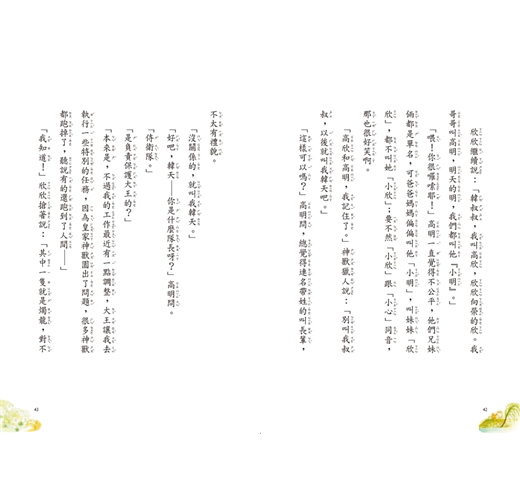 欣欣繼續說：「韓叔叔，我叫高欣，欣欣向榮的欣。我
哥哥叫高明，明天的明，我們都叫他『小明』。」
「喂！你很囉嗦耶！」高明一直覺得不公平，他們兄妹
倆都是單名，可爸爸媽媽偏偏叫他「小明」，叫妹妹「欣
欣」，都不叫她「小欣」；要不然「小欣」跟「小心」同音，
那也很好笑啊。
「高欣和高明，我記住了。」神獸獵人說：「別叫我叔
叔，以後就叫我韓天吧。」
「這樣可以嗎？」高明問，總覺得連名帶姓的叫長輩，
42
不太有禮貌。
「沒關係的，就叫我韓天。」
「好吧，韓天——你是什麼隊長呀？」高明問。
「侍衛隊。」
「是負責保護大王的？」
「本來是，不過我的工作最近有一點調整，大王讓我去
執行一些特別的任務，因為皇家神獸園出了問題，很多神獸
都跑掉了，聽說有的還跑到了人間——」
「我知道！」欣欣搶著說：「其中一隻就是燭龍，對不
43